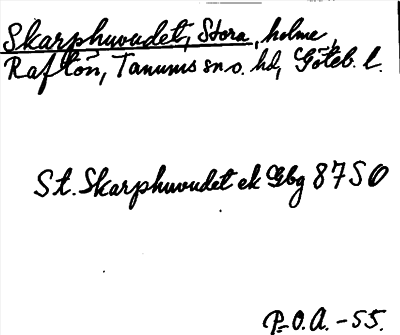 Skarphuvudet, Stora, holme,
Raftön, Tanums sn o. hd, Göteb. l.
St. Skarphuvudet ek Gbg 87 SO
P.O.A. -55.